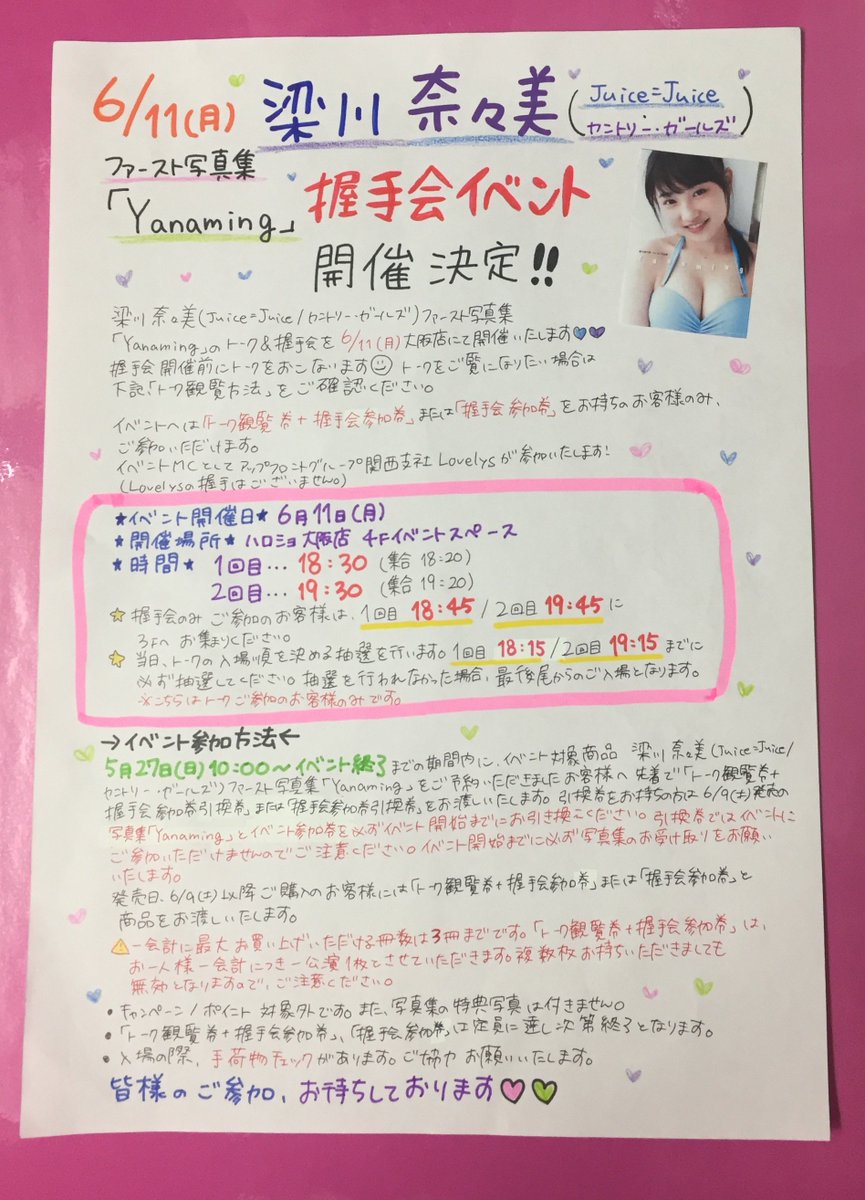 6/11(月) 梁川 奈々美 (Juice=Juice
セントリー・ガールズ)
ファースト写真集
「Yanaming」 握手会イベント
開催 決定!!
梁川 奈々美(Juice=Juice/セントリー・ガールズ)ファースト写真集
「Yanaming」のトーク&握手会を 6/11(月)大阪店にて開催いたします
握手会 開催前にトークをおこないます トークをご覧になりたい場合は
下記、「トーク観覧方法」をご確認ください。
イベントへは「トーク観覧券+握手会参加券」または「握手会参加券」をお持ちのお客様のみ、
ご参加いただけます。
イベントMCとしてアップフロントグループ関西支社 Lovelysが参加いたします!
(Lovelysの握手はございません)
★イベント開催日★ 6月11日(月)
★開催場所★ ハロショ大阪店 4Fイベントスペース
★時間★ 1回目… 18:30 (集合 18:20)
2回目… 19:30 (集合 19:20)
☆ 握手会のみ ご参加のお客様は、1回目 18:45 / 2回目 19:45 に
3Fへ お集まりください。
☆ 当日、トークの入場順を決める抽選を行います。1回目 18:15 / 2回目 19:15 までに
必ず抽選してください。抽選を行われなかった場合、最後尾からのご入場となります。
※こちらはトークご参加のお客様のみです。
→イベント参加方法←
5月27日(日)10:00〜イベント終了までの期間内に、イベント対象商品 梁川 奈々美(Juice=Juice/
セントリー・ガールズ)ファースト写真集「Yanaming」をご予約いただきましたお客様へ 先着で「トーク観覧券+
握手会参加券引換券」または「握手会参加券引換券」をお渡しいたします。引換券をお持ちの方は 6/9(土)発売の
写真集「Yanaming」とイベント参加券を必ずイベント開始までにお引き換えください。引換券ではイベントに
ご参加いただけませんのでご注意ください。イベント開始までに必ず写真集のお受け取りをお願い
いたします。
発売日、6/9(土)以降ご購入のお客様には「トーク観覧券+握手会参加券」または「握手会参加券」と
商品をお渡しいたします。
⚠一会計に最大お買い上げいただける冊数は3冊までです。「トーク観覧券+握手会参加券」は、
お一人様一会計につき一公演1枚とさせていただきます。複数枚お持ちいただきましても
無効となりますので、ご注意ください。
・キャンペーン/ポイント対象外です。また、写真集の特典写真は付きません。
・「トーク観覧券+握手会参加券」、「握手会参加券」は定員に達し次第終了となります。
・入場の際、手荷物チェックがあります。ご協力お願いいたします。
皆様のご参加、お待ちしております♡♡